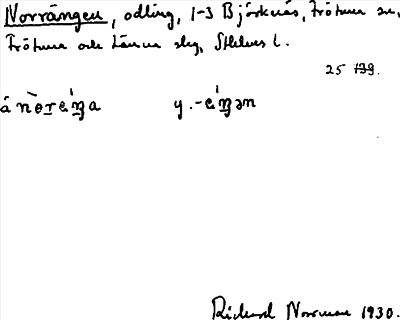 Norrängen, odling, 1-3 Björknäs, Frötuna sn,
Frötuna och Länna skg, Sthlms l.
25 139.
å nø̀re̜ŋa y. -e̜ŋən
Rickard Norrman 1930.